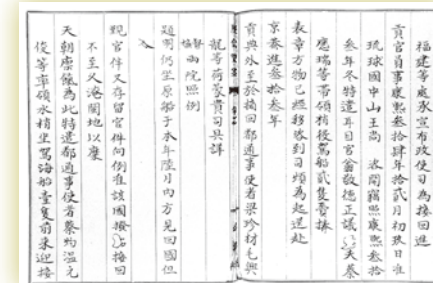 福建等處承宣布政使司為接回進
貢官員事康熙叁拾肆年拾貳月初玖日准
琉球國中山王尚 咨開竊照康熙叁拾
叁年冬特遣耳目官翁敬德正議大夫蔡
應瑞等率領梢役駕船貳隻齎捧
表章方物已經移咨到司煩為起送赴
京奏進叁拾叁年
貢典外至於摘回都通事使者梁珍材毛興
龍等荷蒙貴司具詳
督撫兩院照例
題明仍坐原船于本年陸月內方見回國但
覲官伴又存留官伴向例准該國撥船接回
不至久淹閩地以糜
天朝廩餼為此特遣都通事使者蔡灼溫允
俊等率領水梢坐駕海船壹隻前來迎接